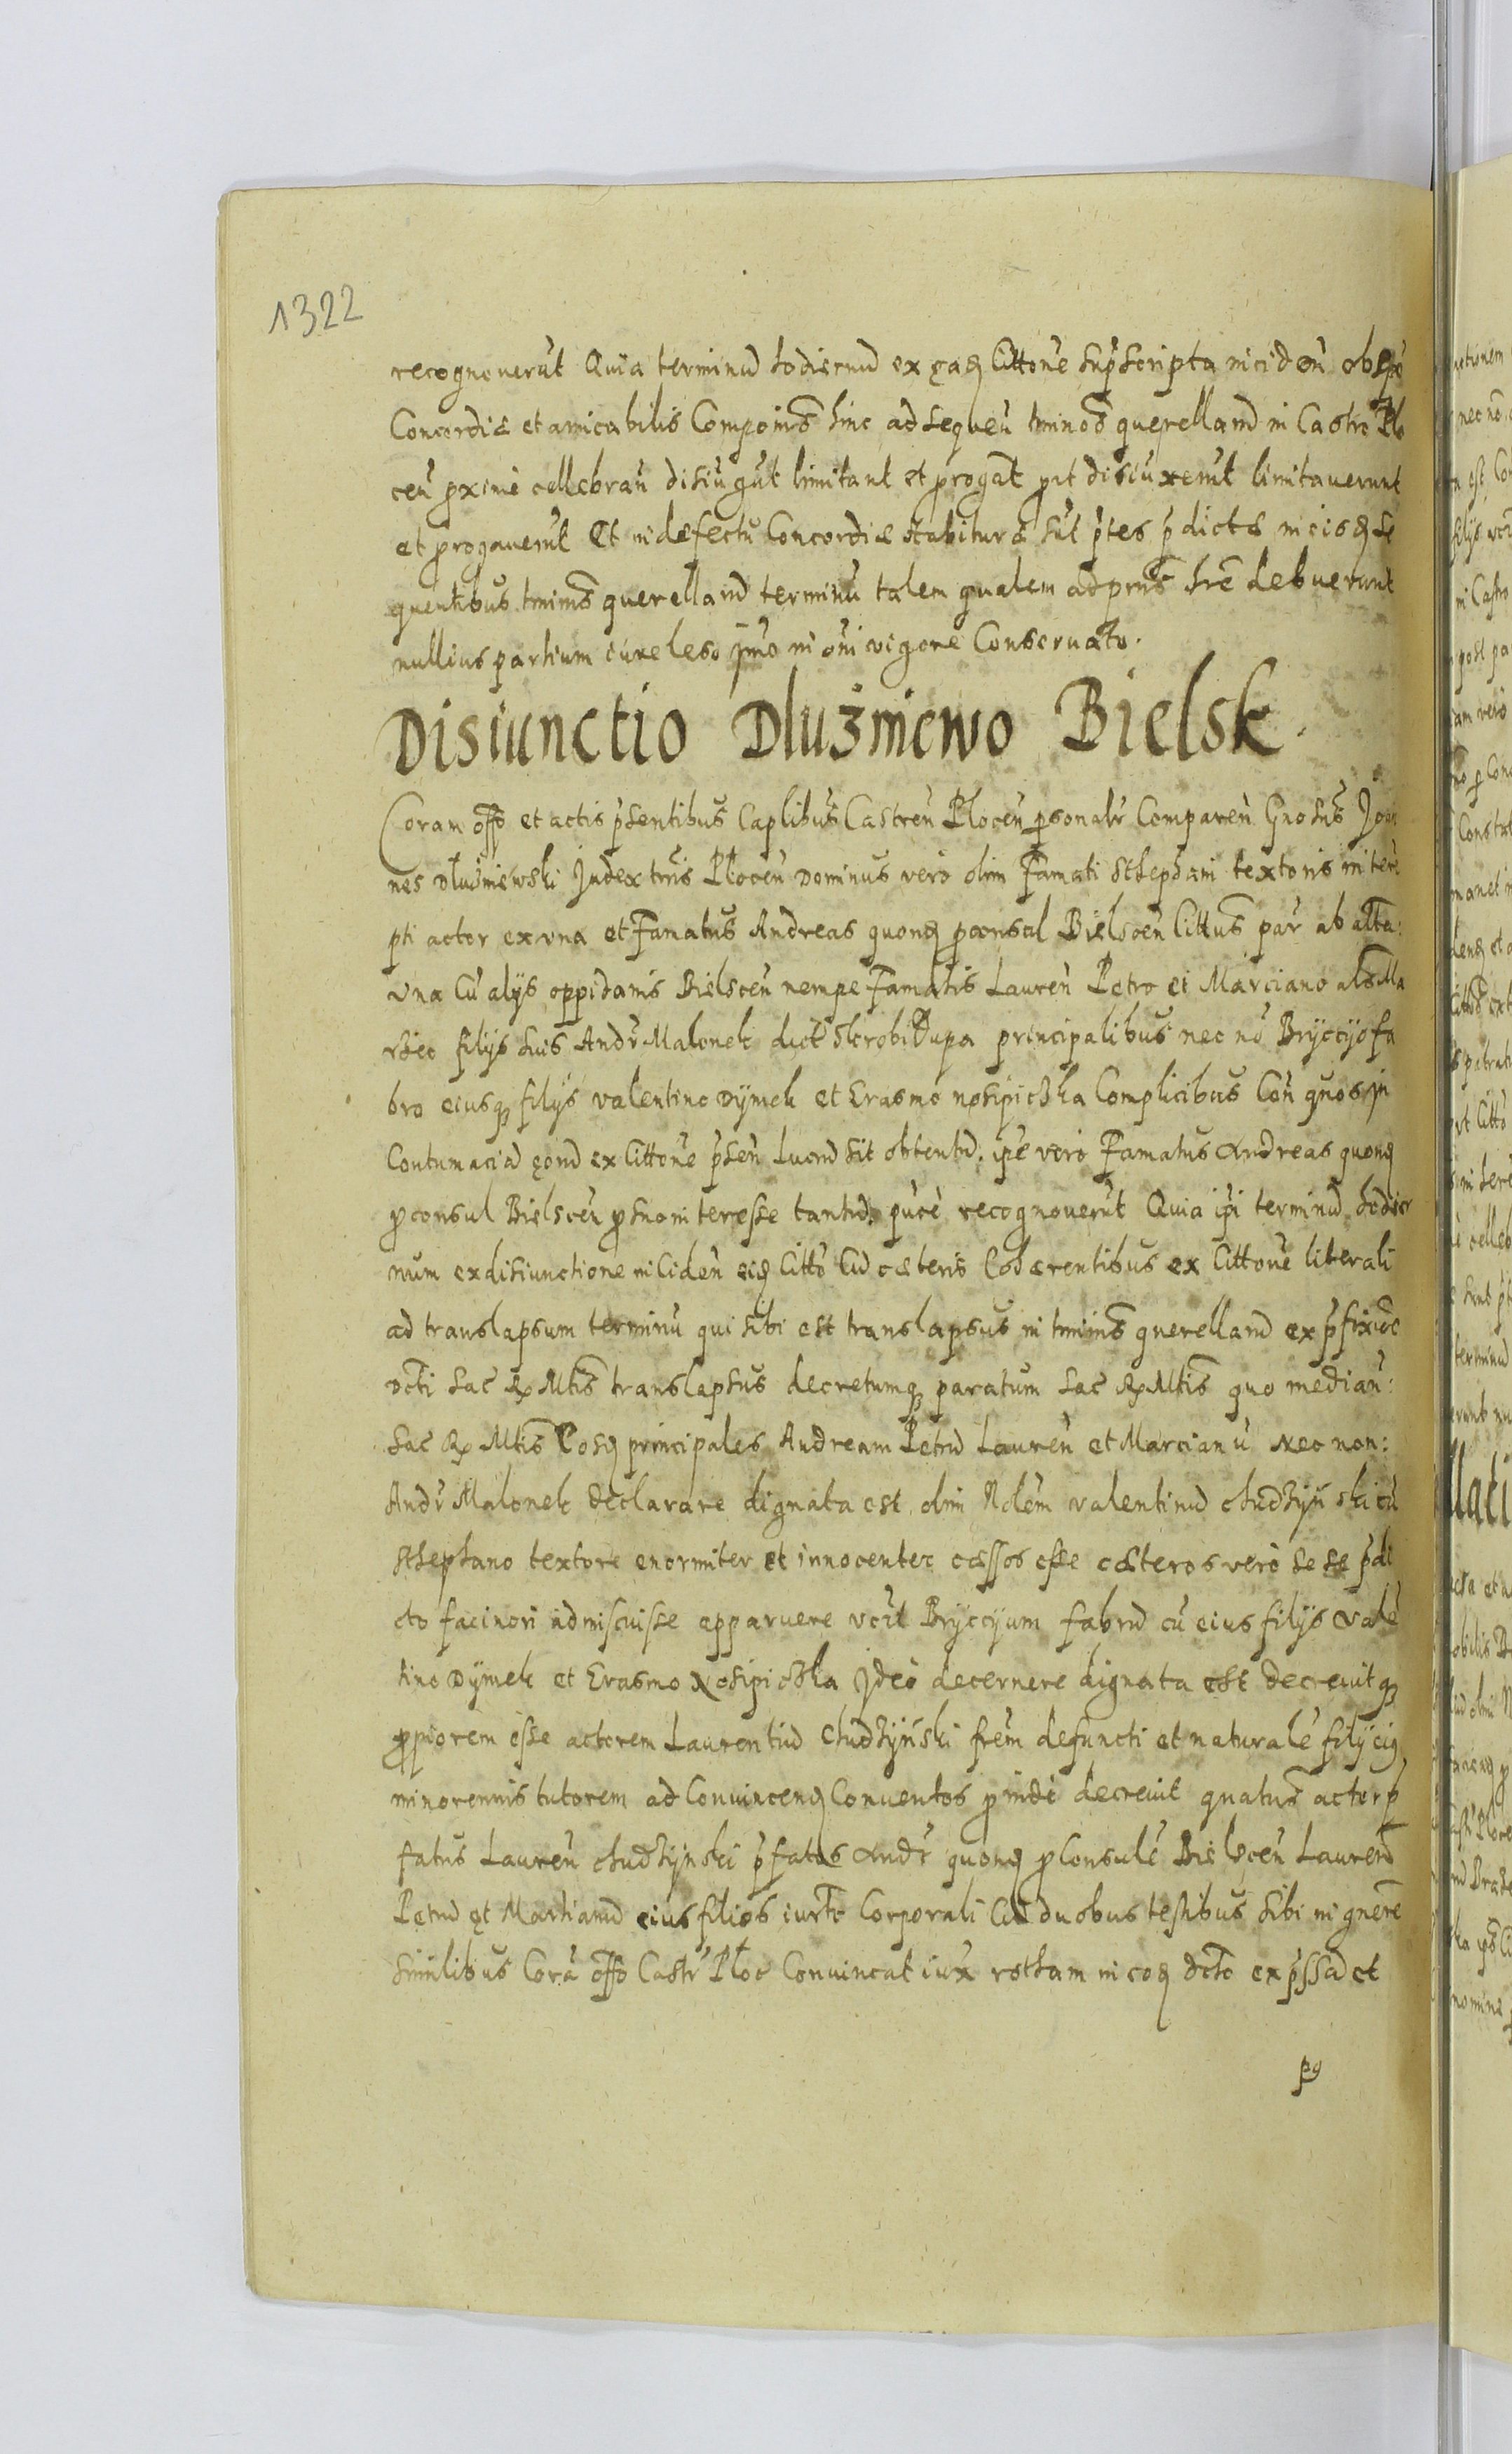 1322
recognoverut Quia terminu hodiernu ex eaq Cittone supscripta inciden ob spe
Concordiæ et amicabilis Componis hinc ad sequen tminos querelland in Castro Plo
cen pxime cellebran disiugut limitant et progat prt disiuxerut limitauerunt
et progauerut Et in defectu Concordiæ stabituræ sut ptes pdictæ in eisq se
quentibus tminis querelland terminu talem qualem ad pns hre debuerunt
nullius partium iure leso imo in oni vigore Conseruato.
Disiunctio Dlużniewo Bielsk.
Coram offo et actis psentibus Caplibus Castren Plocen psonalr Comparen Gnosus Joan
nes Dlużniewski Judex tris Plocen Dominus vero olim Famati Sthephani textoris interē
pti actor ex vna et Famatus Andreas quonq proconsul Bielscen Cittus par ab alta:
vna Cu alijs oppidanis Bielscen nempe Famatis Lauren Petro et Marciano als Ma
rsec filijs suis Andr Malonek dict SkrobiDupa principalibus nec no Bryccyo fa
bro eiusq filijs valentino Dymek et Erasmo nosipichka Complicibus Con quos in
Contumacia eond ex Cittone psen Lucrd sit obtentu. ipe vero Famatus Andreas quonq
proconsul Bielscen pro suo interesse tantud puce recognouerut Quia ipi terminu hodier
num ex disiunctione inCiden eiq Citto Cu cæteris Cohærentibus ex Cittone liberali
ad translapsum terminu qui sibi est translapsus in tminis querelland ex pfixioe
Dcti Sac R Mtis translapsus decretumq paratum Sac R Mtis quo median:
Sac R Mtis Eosq principales Andream Petru Lauren et Marcianu Nec non:
Andr Malonek declarare dignata est olim Nlem valentinu chudzyński cu
Sthephano textore enormiter et innocenter cæssos esse cæteros vero se se pdi
cto facinori admiscuisse apparuere vcrt Bryccyum fabru cu eius filijs vale
tino Dymek et Erasmo Nosipichka Jdeo decernere dignata est Decreuitq
propiorem esse actorem Laurentiu Chudzyński frem defuncti et naturale filij eiq
minorennis tutorem ad Convincenq Conuentos proinde decreuit quatus actor p
fatus Lauren chudzynski pfatos Andr quonq proConsule Bielscen Lauren
Petru et Martianu eius filios iurto Corporali Cu duobus testibus sibi in gnere
similibus Cora offo Castr Ploc Convincat iux rotham in eoq dcto expssa et
pq